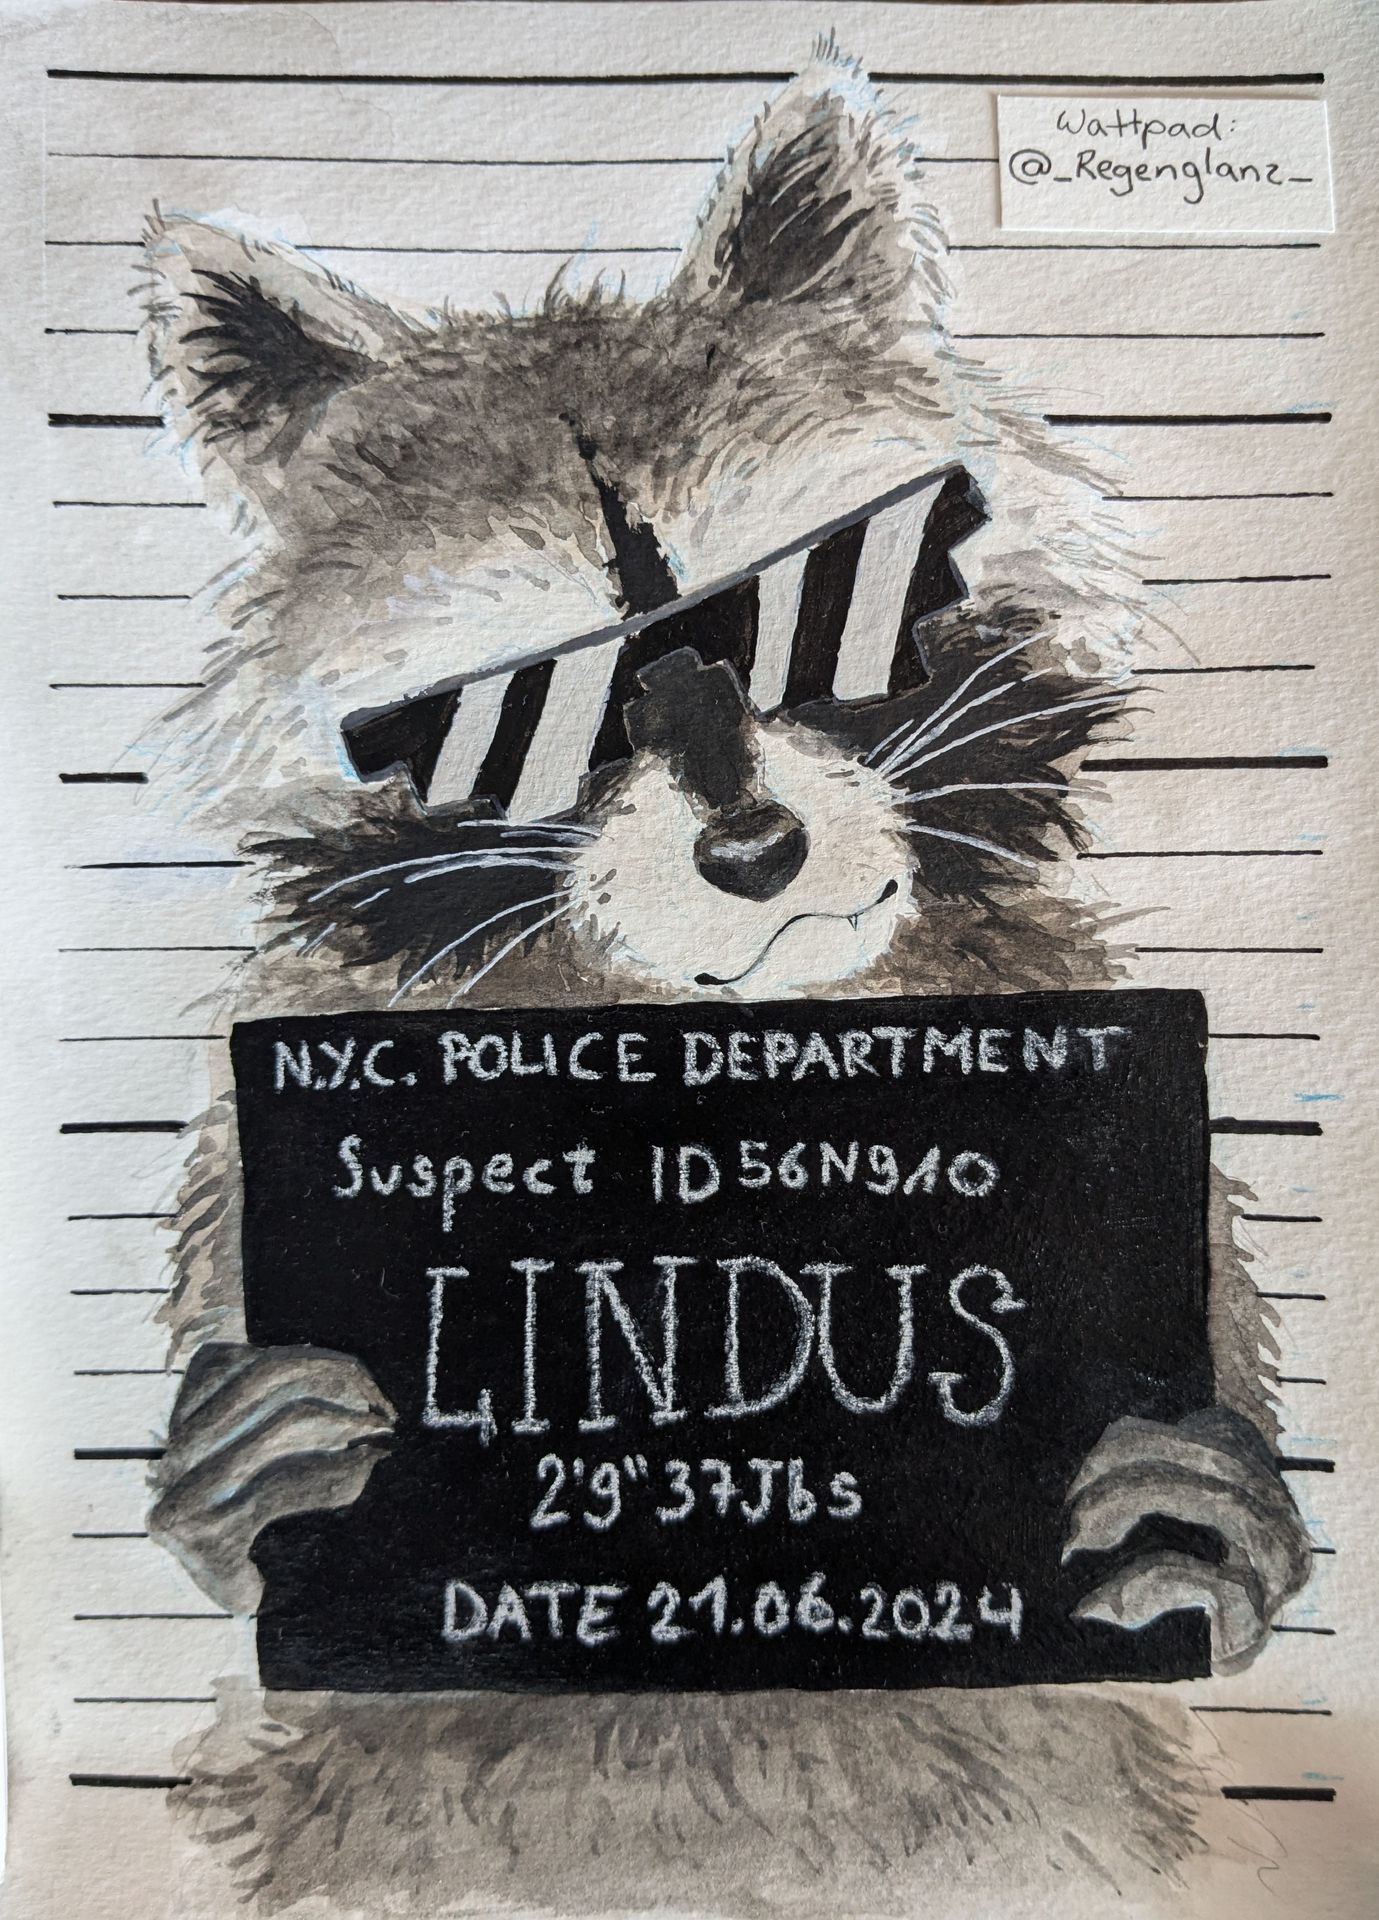 Wattpad:
@_Regenglanz_
N.Y.C. POLICE DEPARTMENT
Suspect ID 56N910
LINDUS
2'9" 37Jbs
DATE 21.06.2024